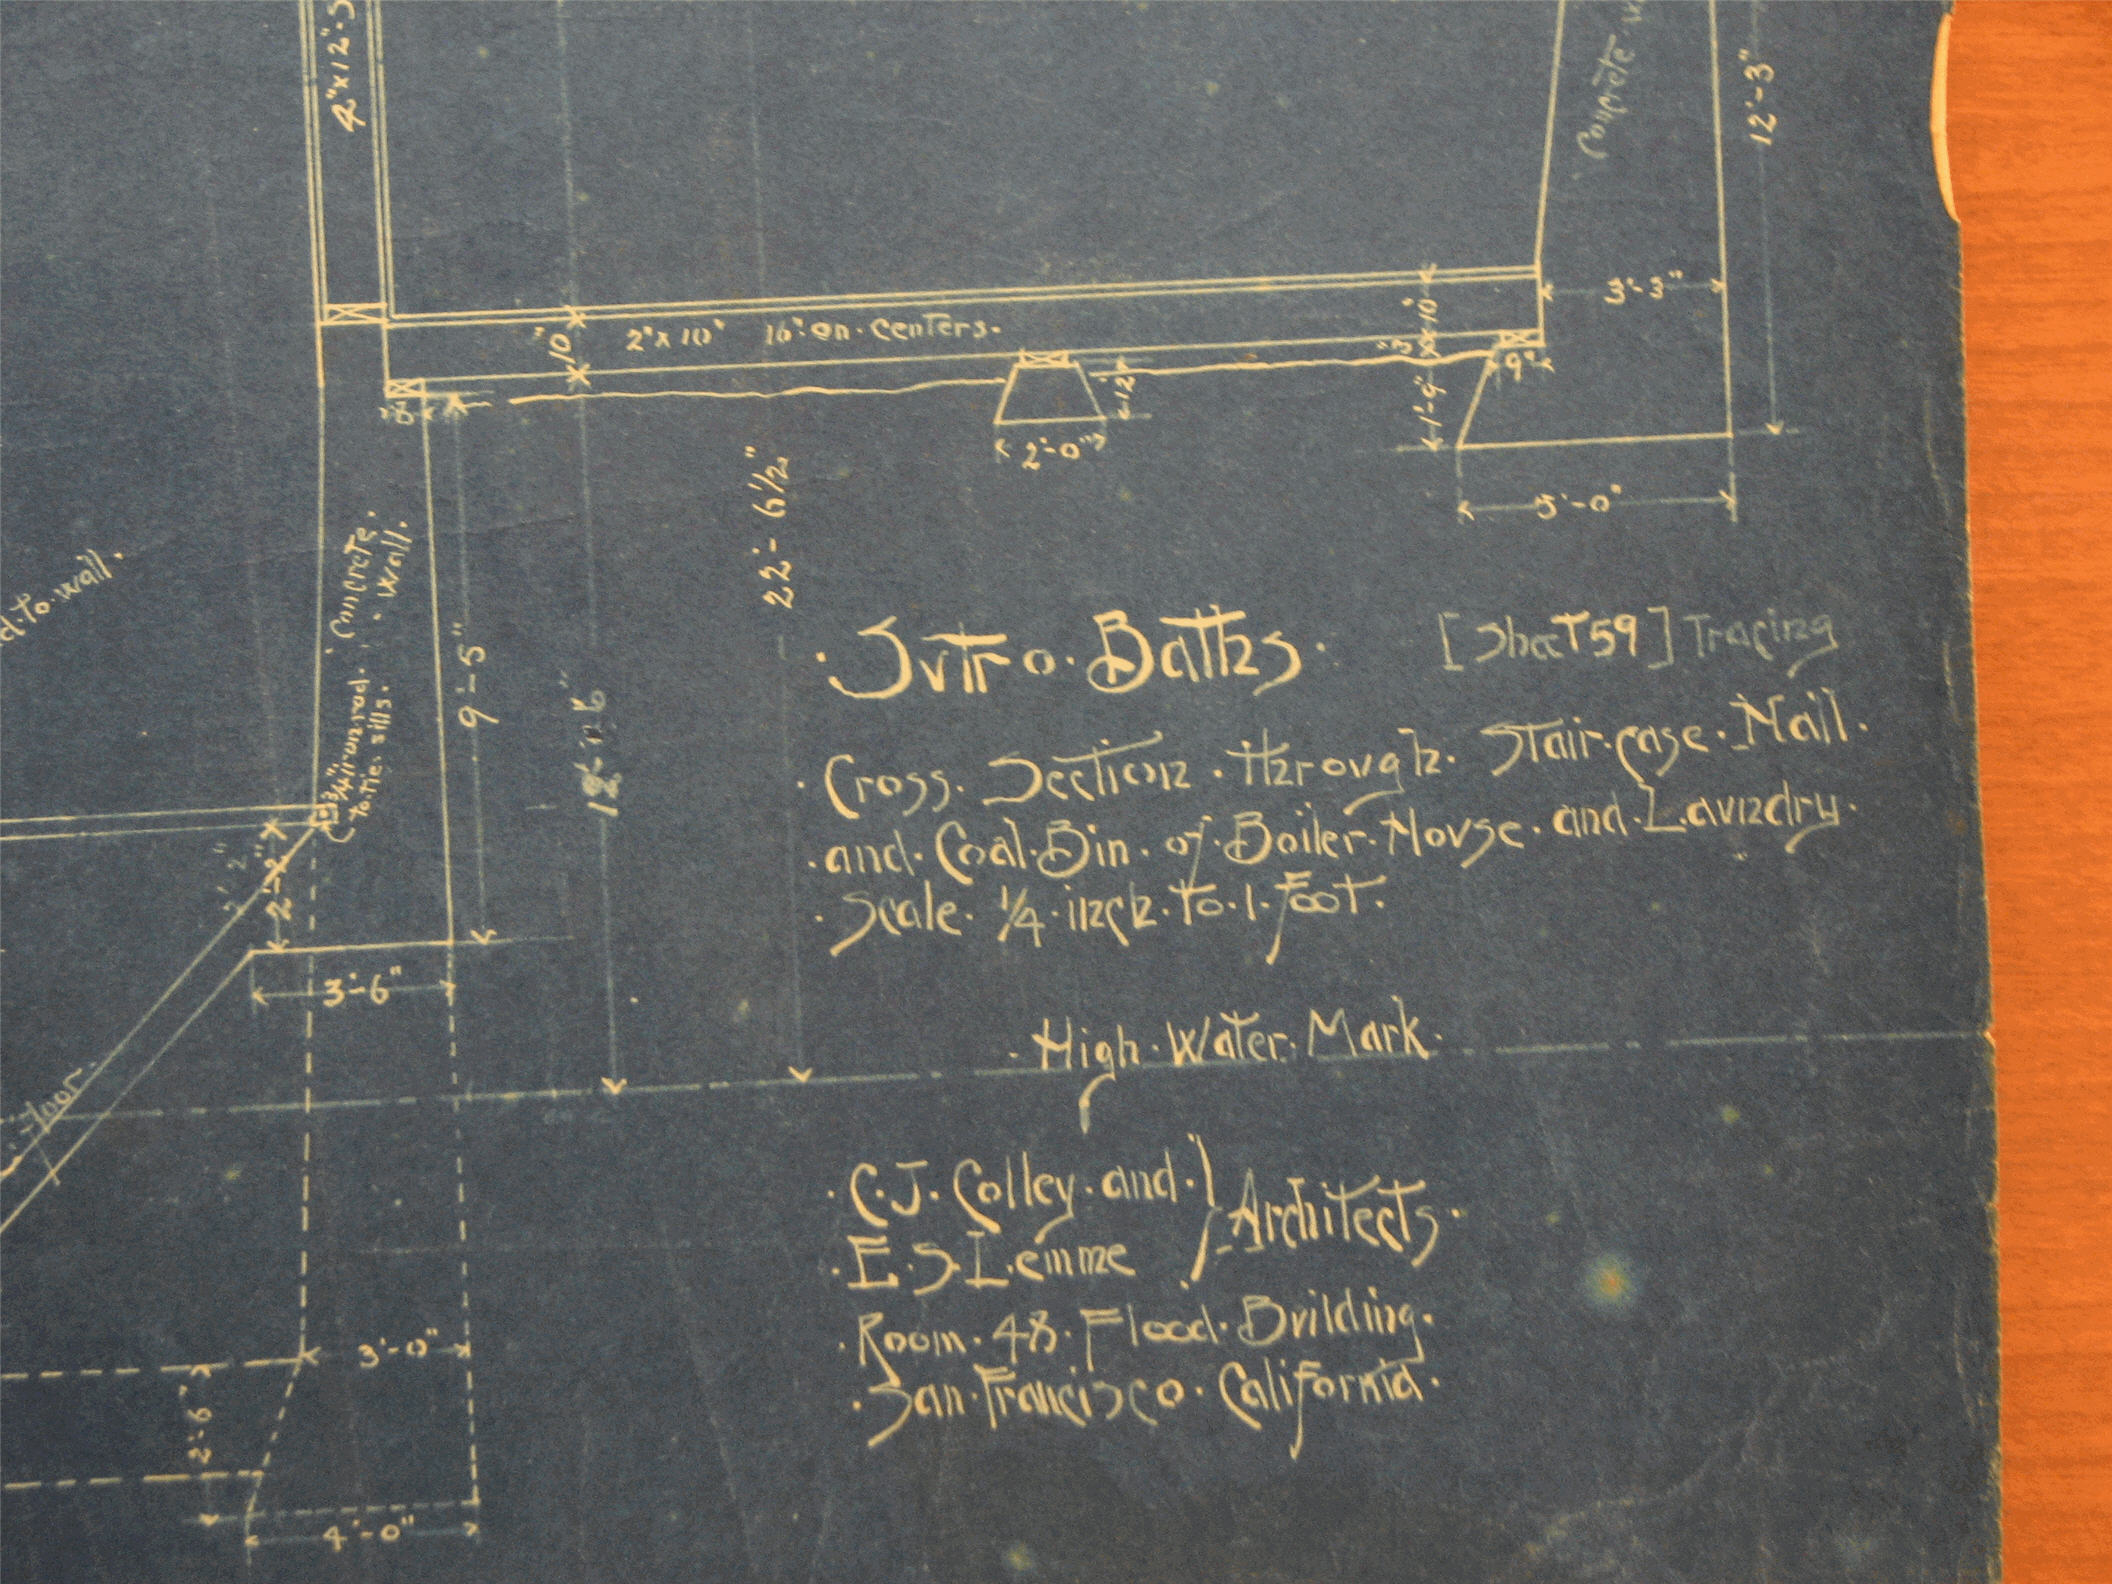 4"x12"
Concrete
12'-3"
3'-3"
10"
2"x10" 16" on centers.
10"
3"
9"
8"
12"
1'-9"
2'-0"
5'-0"
22'-6½"
d. to. wall.
Concrete.
wall.
¾" iron rod.
to tie sills.
9'-5"
2'-2"
2'-2"
3'-6"
floor.
3'-0"
2'-6"
4'-0"
·Svtro·Baths·
[Sheet 59] Tracing
·Cross·Section·through·Stair·case·Hall·
·and·Coal·Bin·of·Boiler·Hovse·and·Lavndry·
·Scale·¼·inch·to·1·foot·
·High·Water·Mark·
·C·J·Colley·and·
·E·S·Lemme
·Architects·
·Room·48·Flood·Bvilding·
·San·Francisco·California·